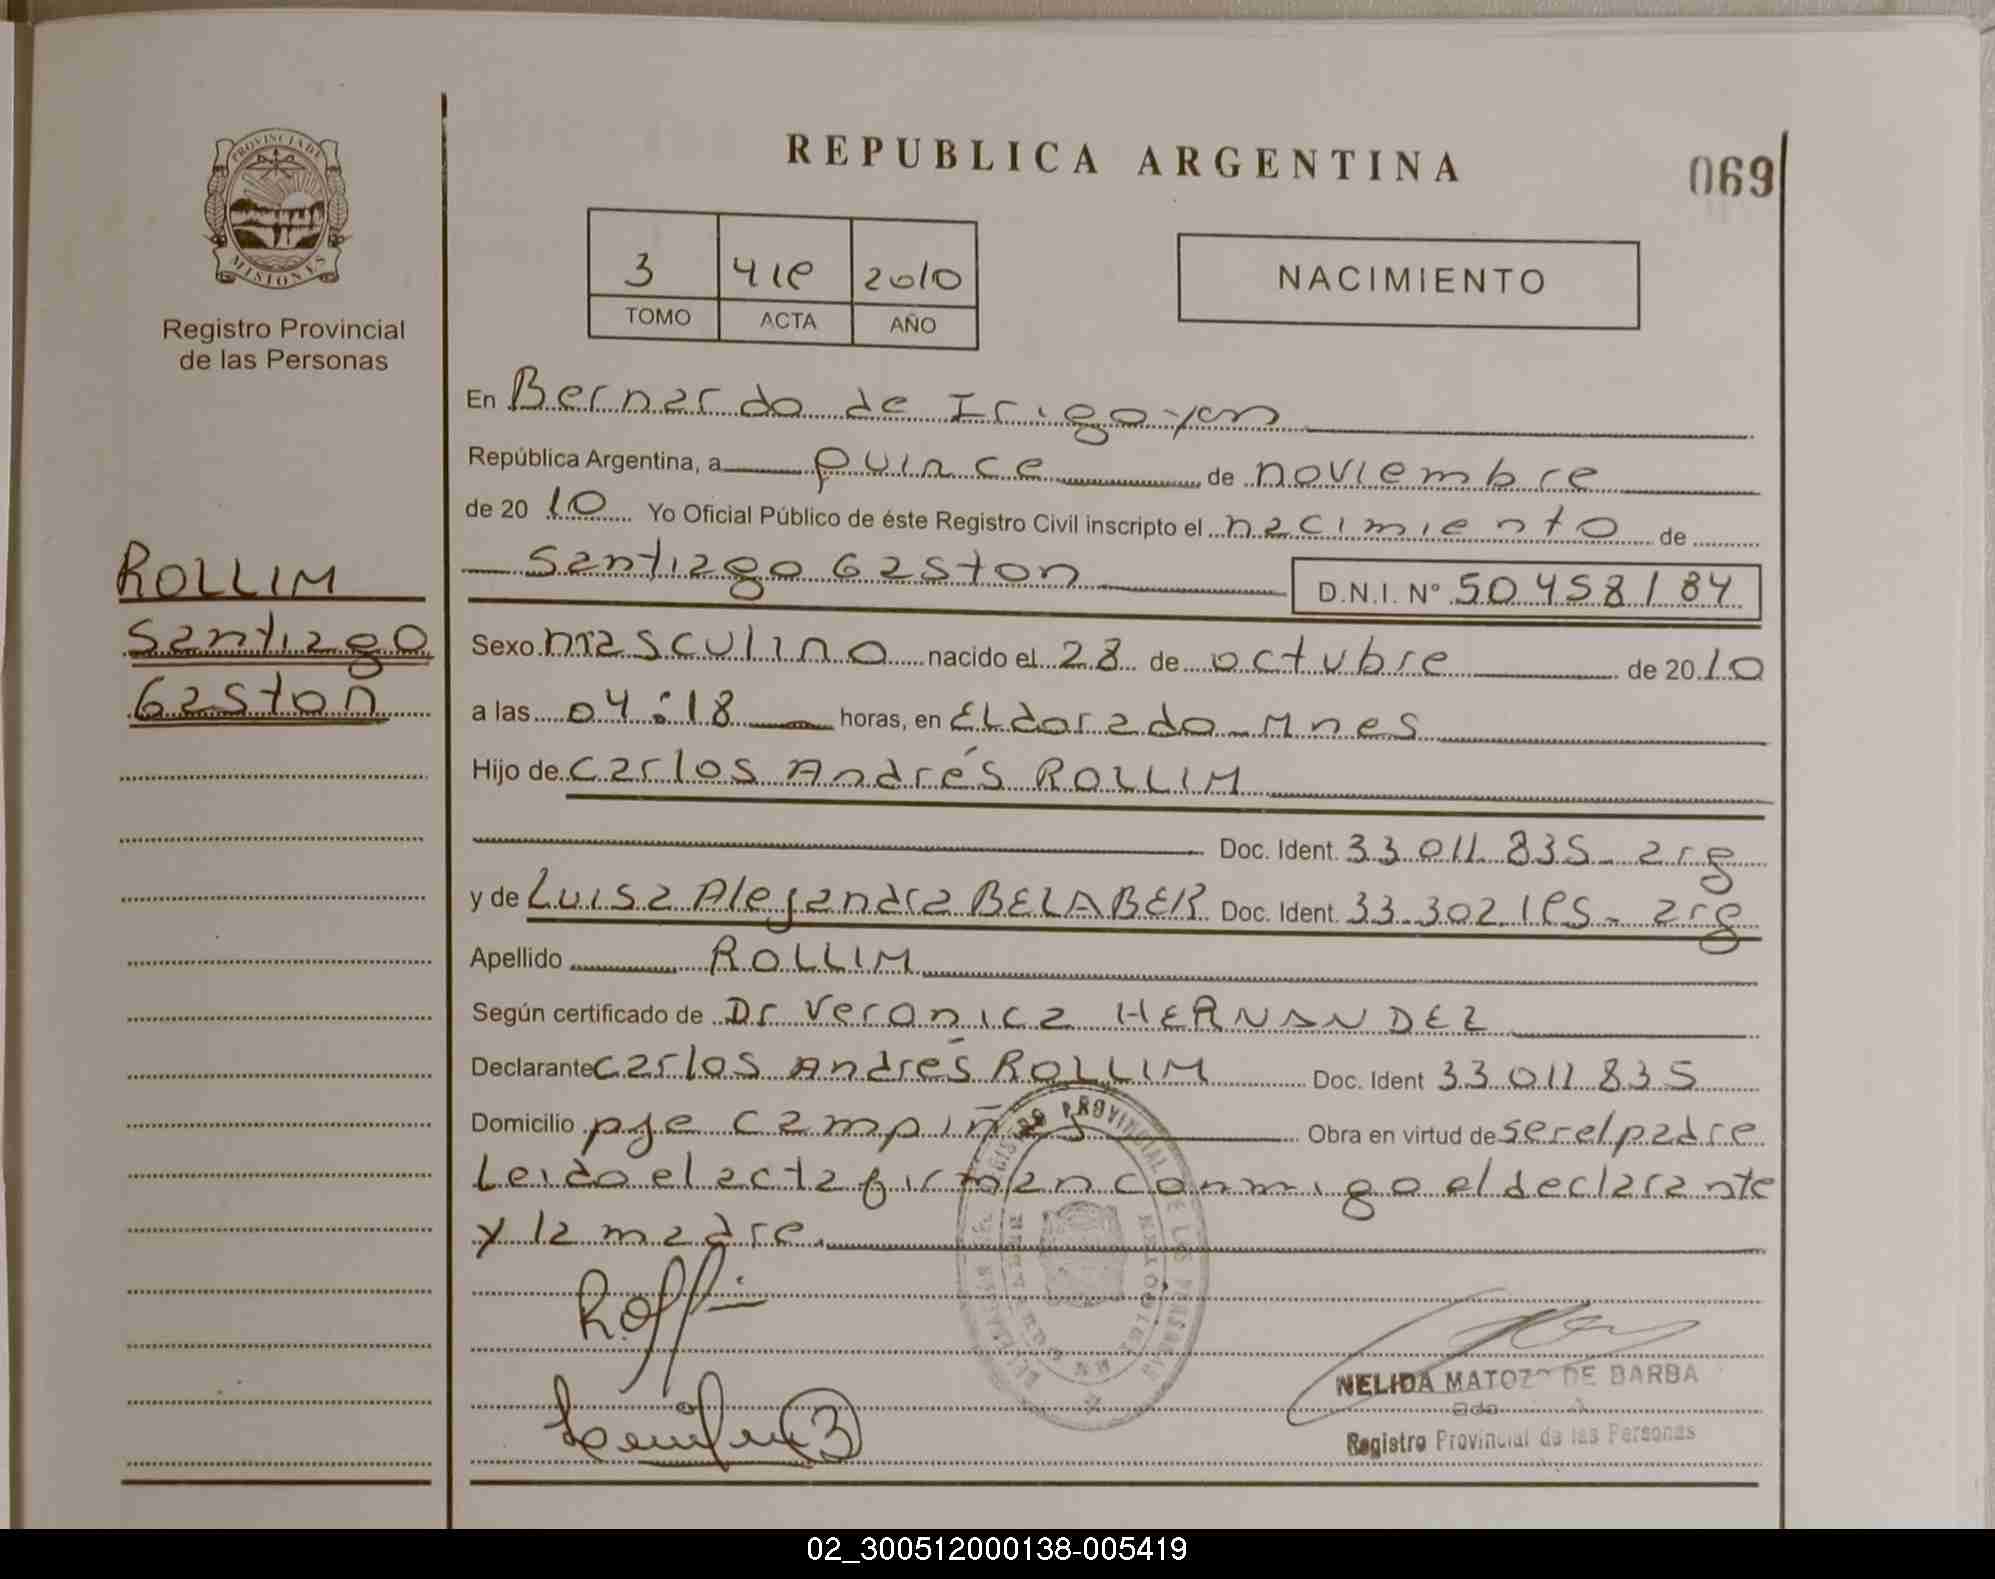 PROVINCIA DE
MISIONES
Registro Provincial
de las Personas
ROLLIM
Santiago
Gaston
REPUBLICA ARGENTINA
069
3 419 2010
TOMO ACTA AÑO
NACIMIENTO
En Bernardo de Irigoyen
República Argentina, a quince de noviembre
de 20 10 Yo Oficial Público de éste Registro Civil inscripto el nacimiento de
Santiago Gaston D.N.I. Nº 50 458 184
Sexo masculino nacido el 28 de octubre de 20 10
a las 04:18 horas, en Eldorado - Mnes
Hijo de Carlos Andrés ROLLIM
Doc. Ident. 33 011 835 - arg
y de Luisa Alejandra BELABER Doc. Ident. 33.302.195 - arg
Apellido ROLLIM
Según certificado de Dr Veronica HERNANDEZ
Declarante Carlos Andrés ROLLIM Doc. Ident 33 011 835
Domicilio pje campiñas Obra en virtud de ser el padre
Leido el acta firman conmigo el declarante
y la madre.
NELIDA MATOZO DE BARBA
Registro Provincial de las Personas
02_300512000138-005419